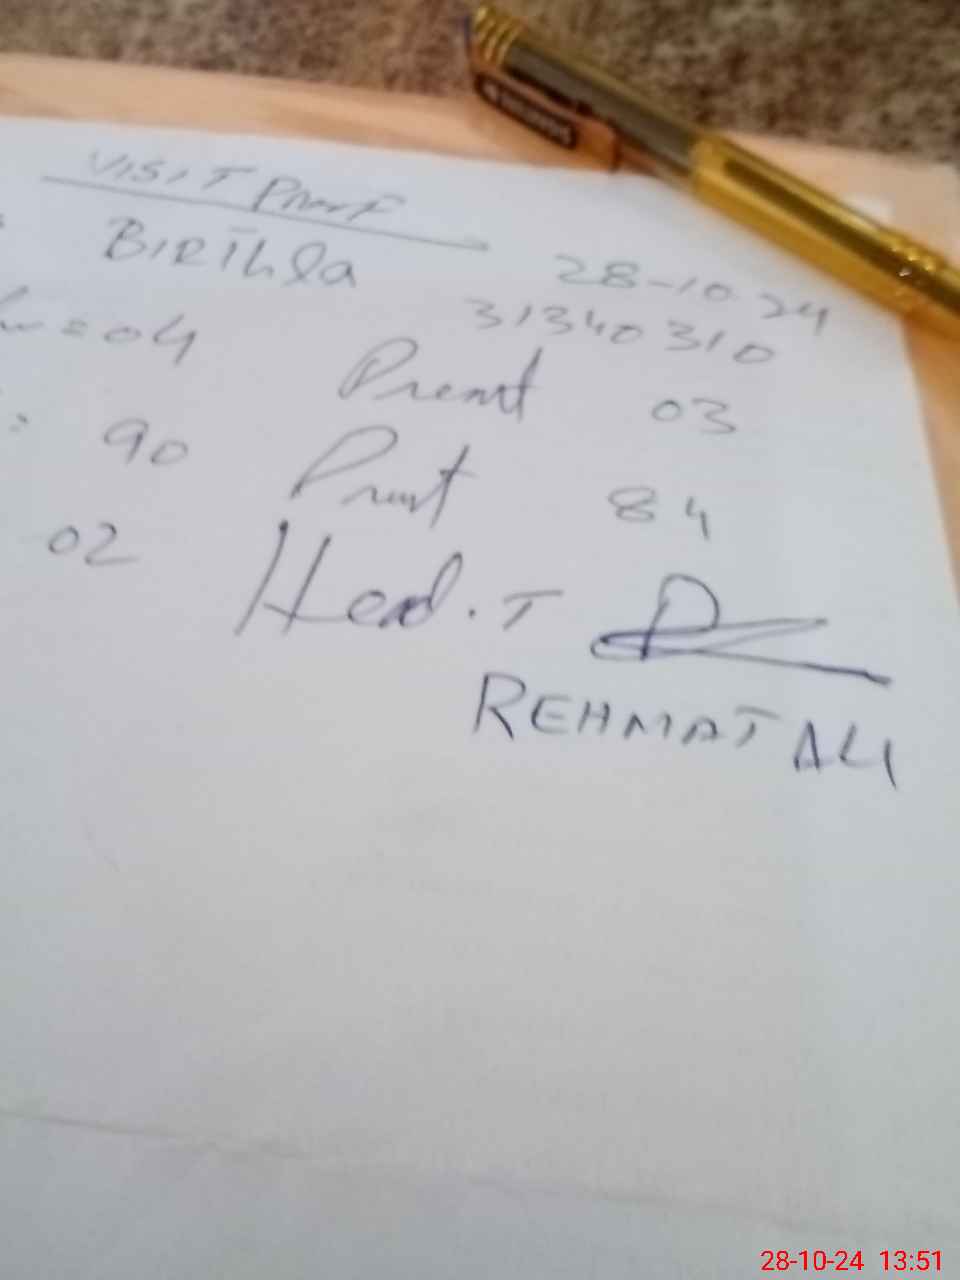 VISIT Proof
BIRTHla 28-10-24
31340310
= 04 Present 03
: 90 Prsnt 84
02 Head.T
REHMAT ALI
28-10-24 13:51